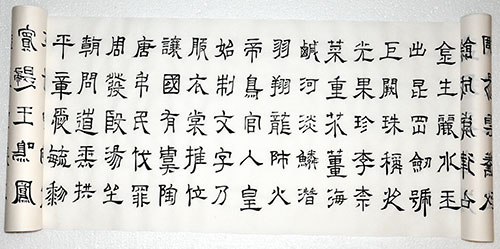 金生麗水玉
出昆岡劒號
巨闕珠稱夜
光果珍李奈
菜重芥薑海
鹹河淡鱗潛
羽翔龍師火
帝鳥官人皇
始制文字乃
服衣裳推位
讓國有虞陶
唐弔民伐罪
周發殷湯坐
朝問道垂拱
平章愛毓黎
賓歸王鳴鳳